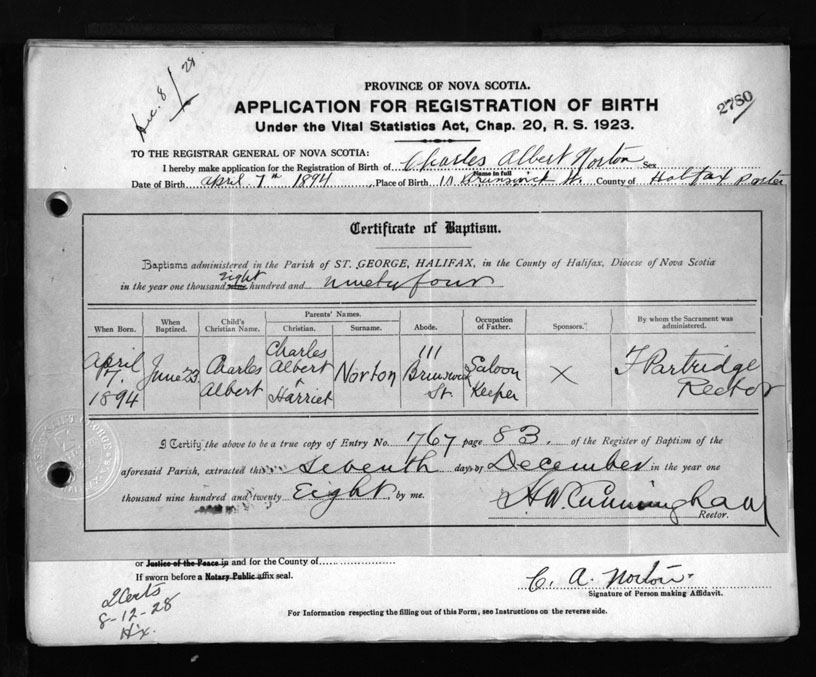 Dec. 8/28
PROVINCE OF NOVA SCOTIA.
2780
APPLICATION FOR REGISTRATION OF BIRTH
Under the Vital Statistics Act, Chap. 20, R. S. 1923.
TO THE REGISTRAR GENERAL OF NOVA SCOTIA:
I hereby make application for the Registration of Birth of Charles Albert Norton Sex
Name in full
Date of Birth April 7th 1894 Place of Birth Brunswick St. County of Halifax
Certificate of Baptism.
Baptisms administered in the Parish of ST. GEORGE, HALIFAX, in the County of Halifax, Diocese of Nova Scotia
in the year one thousand eight hundred and ninety four
When Born. When Baptized. Child's Christian Name. Parents' Names. Christian. Surname. Abode. Occupation of Father. Sponsors. By whom the Sacrament was administered.
April 7. 1894 June 23. Charles Albert Charles Albert & Harriet Norton 111 Brunswick St Saloon Keeper X F Partridge Rector
I Certify the above to be a true copy of Entry No. 1767 page 83. of the Register of Baptism of the
aforesaid Parish, extracted this seventh day of December in the year one
thousand nine hundred and twenty Eight by me. H.W. Cunningham
Rector.
or Justice of the Peace in and for the County of
If sworn before a Notary Public affix seal.
C. A. Norton
Signature of Person making Affidavit.
2 Certs
8-12-28
Hx.
For Information respecting the filling out of this Form, see Instructions on the reverse side.